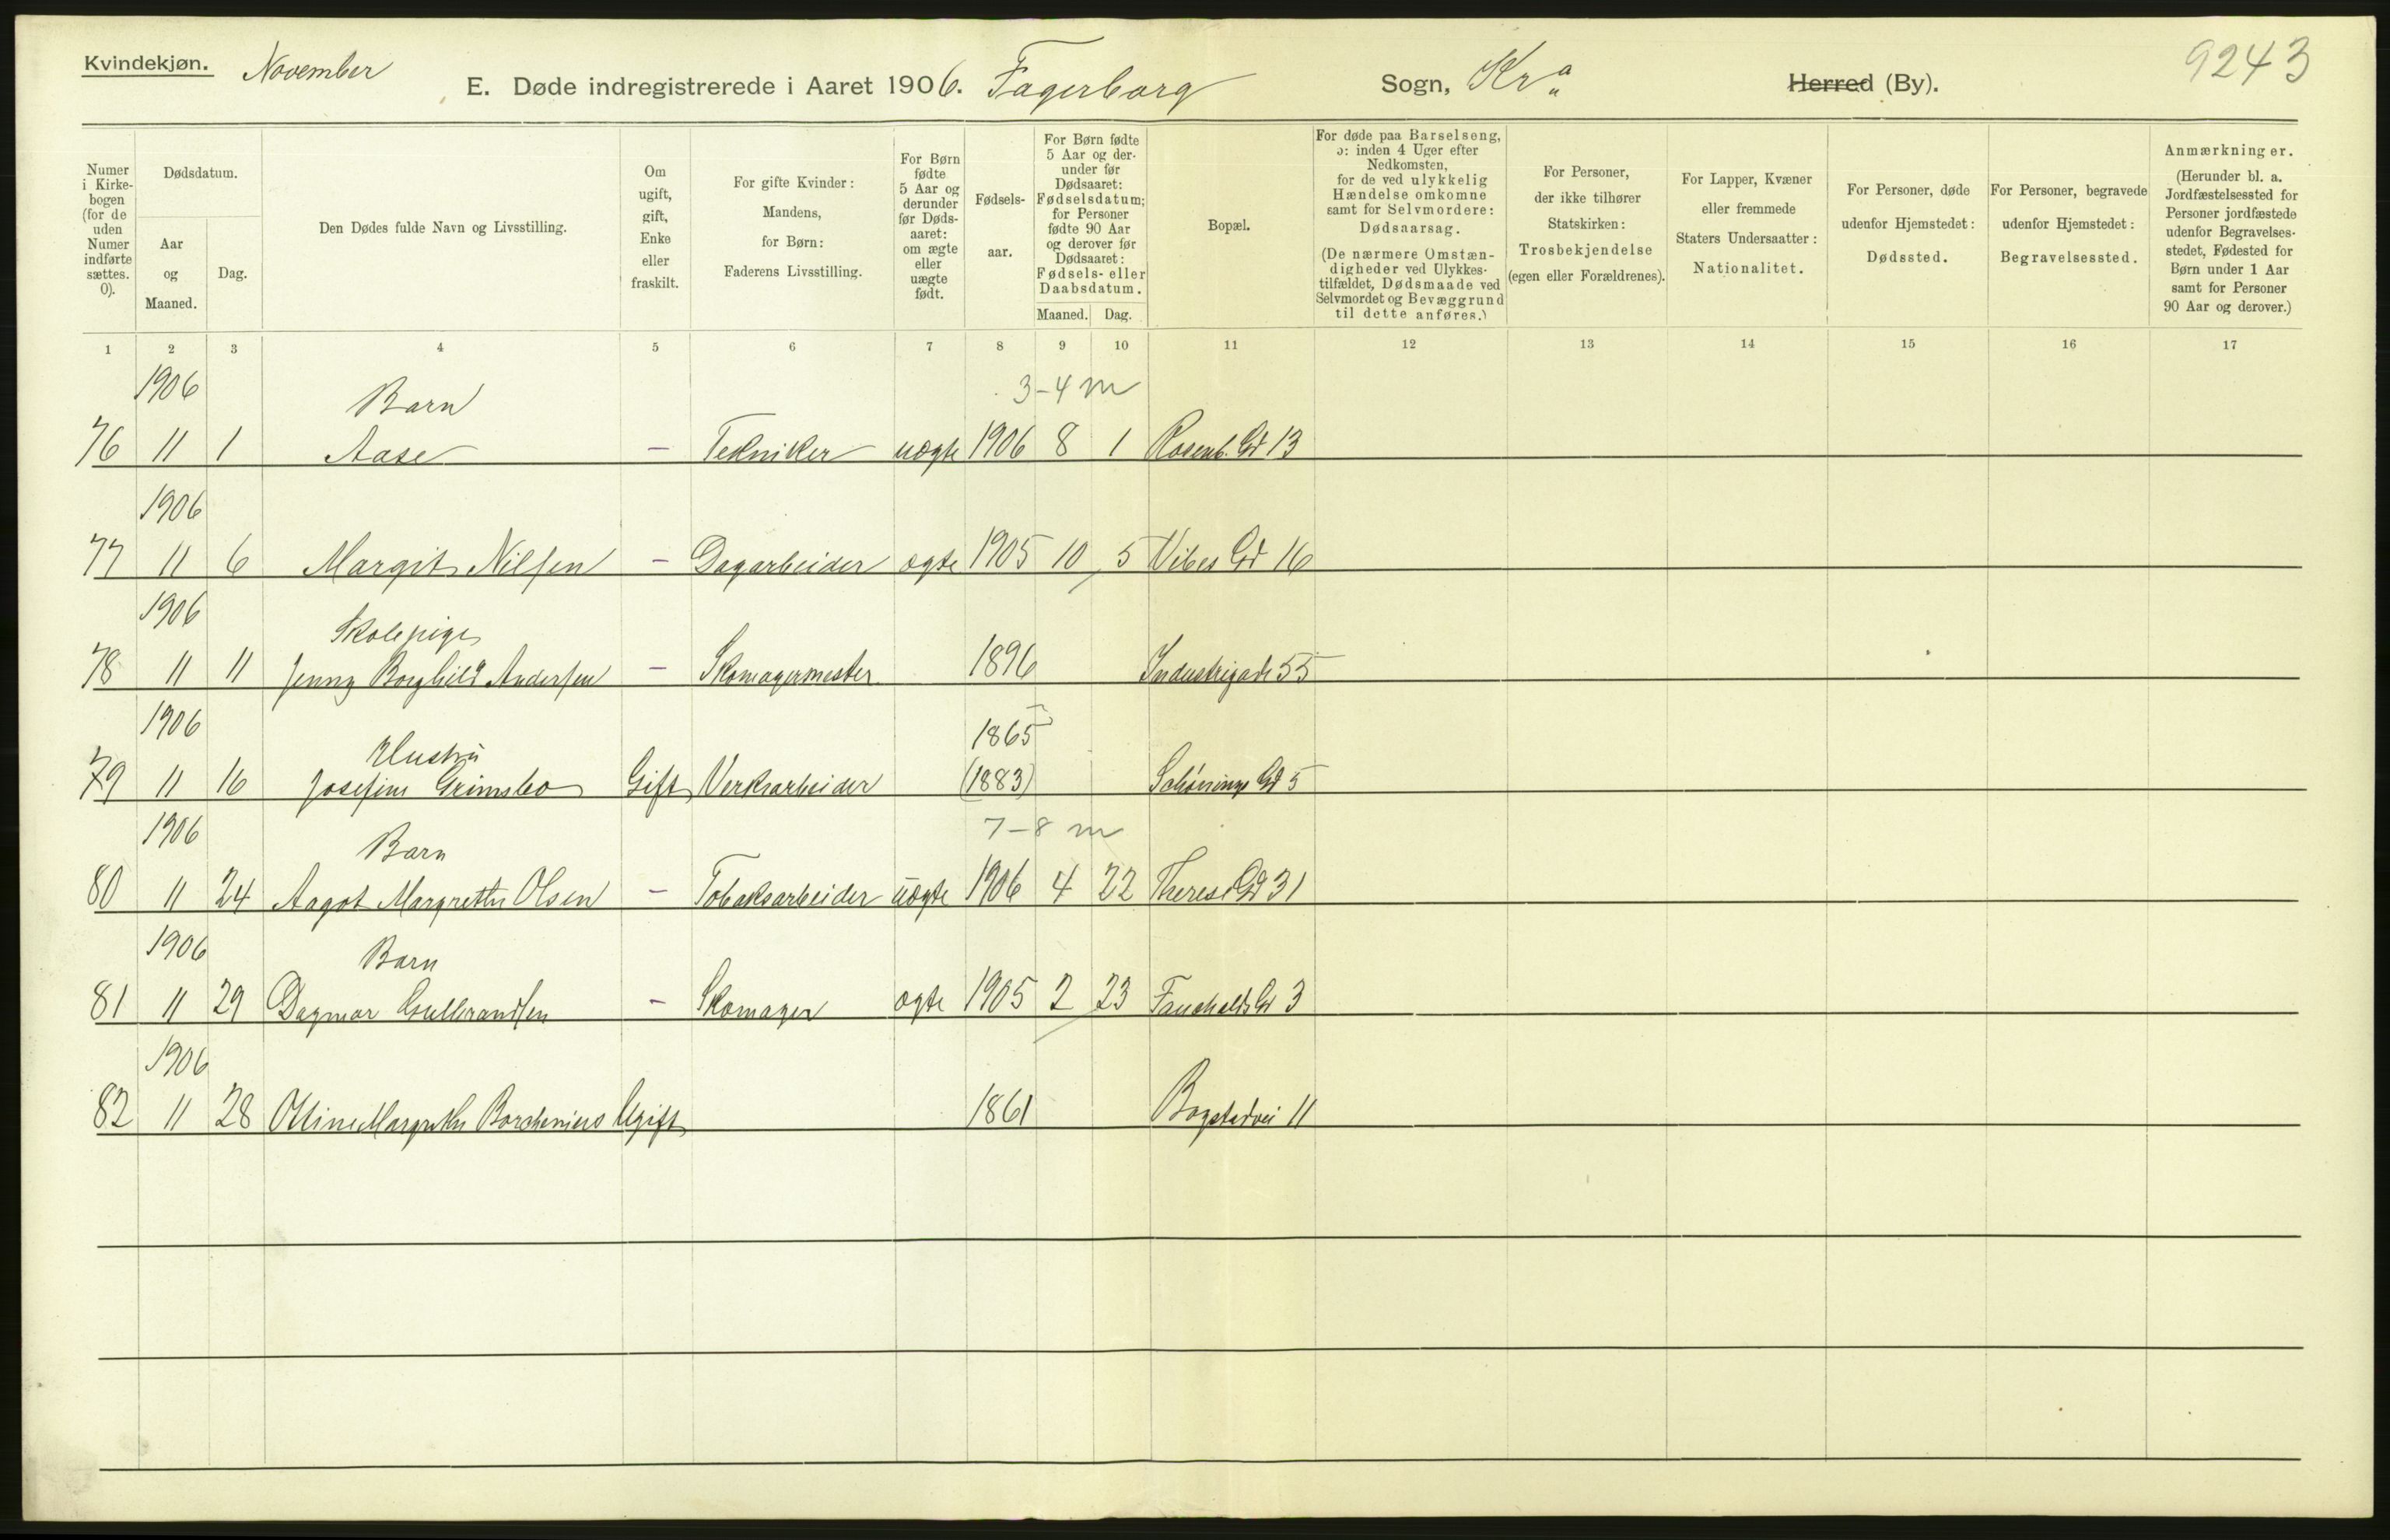 Kvindekjøn. November
E. Døde indregistrerede i Aaret 1906. Fagerborg Sogn, Kra Herred (By). 9243
Numer i Kirkebogen (for de uden Numer indførte sættes. 0).
Dødsdatum.
Aar og Maaned.
Dag.
Den Dødes fulde Navn og Livsstilling.
Om ugift, gift, Enke eller fraskilt.
For gifte Kvinder: Mandens, for Børn: Faderens Livsstilling.
For Børn fødte 5 Aar og derunder før Døds-aaret: om ægte eller uægte født.
Fødsels-aar.
For Børn fødte 5 Aar og der-under før Dødsaaret: Fødselsdatum; for Personer fødte 90 Aar og derover før Dødsaaret: Fødsels- eller Daabsdatum.
Maaned. Dag.
Bopæl.
For døde paa Barselseng, ɔ: inden 4 Uger efter Nedkomsten, for de ved ulykkelig Hændelse omkomne samt for Selvmordere: Dødsaarsag.
(De nærmere Omstæn-digheder ved Ulykkes-tilfældet, Dødsmaade ved Selvmordet og Bevæggrund til dette anføres.)
For Personer, der ikke tilhører Statskirken: Trosbekjendelse (egen eller Forældrenes).
For Lapper, Kvæner eller fremmede Staters Undersaatter: Nationalitet.
For Personer, døde udenfor Hjemstedet: Dødssted.
For Personer, begravede udenfor Hjemstedet: Begravelsessted.
Anmærkninger.
(Herunder bl. a. Jordfæstelsessted for Personer jordfæstede udenfor Begravelses-stedet, Fødested for Børn under 1 Aar samt for Personer 90 Aar og derover.)
1 2 3 4 5 6 7 8 9 10 11 12 13 14 15 16 17
1906 Barn 3-4 m
76 11 1 Aase - Tekniker uægte 1906 8 1 Rosenb. Gd 13
1906
77 11 6 Margit Nilsen - Dagarbeider ægte 1905 10 5 Vibes Gd 16
1906 Skolepige
78 11 11 Jenny Borghild Andersen - Skomagermester 1896 Industrigade 55
1906 Hustru 1865
79 11 16 Josefine Grimsbo Gift Verksarbeider (1883) Schönings Gd 5
1906 Barn 7-8 m
80 11 24 Aagot Margrethe Olsen - Tobaksarbeider uægte 1906 4 22 Theresesgd 31
1906 Barn
81 11 29 Dagmar Gulbrandsen - Skomager ægte 1905 2 23 Fauchalds Gd 3
1906
82 11 28 Ottine Margrethe Borchenius Ugift 1861 Bogstadvei 11